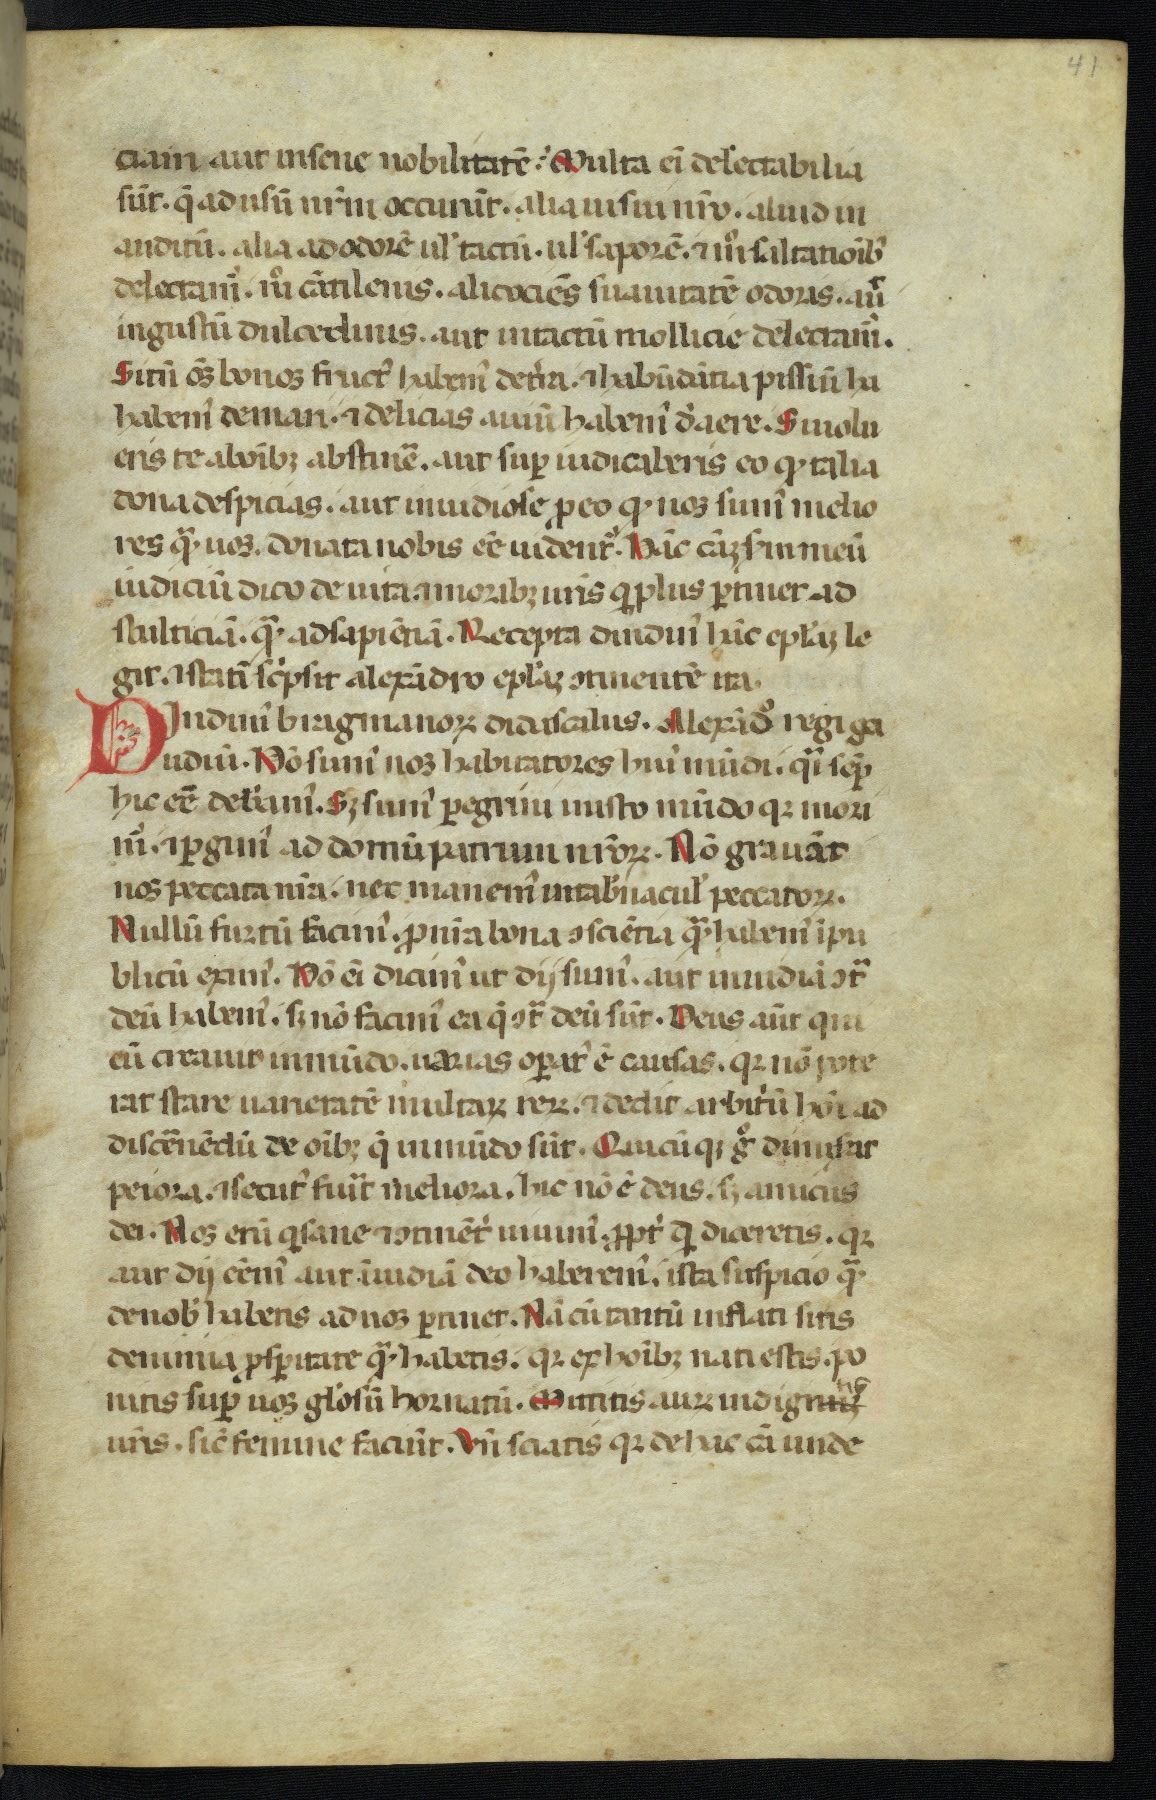 41
ciam aut in sene nobilitatē. Multa eī delectabilia
sūt. q̄ ad usū nr̄m occurrūt. alia uisui nr̄o. aliud in
auditū. alia ad odorē ul' tactū. ul' saporē.
delectam᷒. cātilenis. suauitatē odoris.
in gustū dulcedinis. aut in tactū mollicie delectam᷒.
Si tū oēs bonos fruct᷒ habem᷒ de t̄ra. ⁊ habūdātia pissiū ha
habem᷒ de mari. ⁊ delicias auiū habem᷒ d̓ aere. Si uolu
eris te ab oībꝫ abstinē. aut suꝑ iudicaberis eo ꝙ talia
dona despicias. aut inuidiose ꝑ eo ꝙ nos sum᷒ melio
res q̄ uos. donata nobis eē uident᷒. Hāc cāꝫ sm̄ meū
iudiciū dico de uita ⁊ moribꝫ ur̄is ꝙ plus ꝑtinet ad
stulticiā. q̄ ad sapiētiā. Recepta dindim᷒ hāc epl'aꝫ le
git. ⁊ statī sc̓psit alexādro epl'aꝫ ꝯtinentē ita.
Dindim᷒ bragmanoꝝ didascalus. Alexād᷒ regi ga
udiū. Nō sum᷒ nos habitatores hui᷒ mūdi. q̄i sēꝑ
hic eē debeam᷒. Sꝫ sum᷒ ꝑegrini in isto mūdo qꝛ mori
m᷒. ⁊ ꝑgim᷒ ad domū patrum nr̄oꝝ. Nō grauāt
nos peccata nr̄a. nec manem᷒ in tab̓nacul' peccatoꝝ.
Nullū furtū facim᷒. ꝓ nr̄a bona ꝯsciētia q̄ habem᷒ ī pu
blicū exim᷒. Nō eī dicim᷒ ut dij sum᷒. aut inuidiā ꝯt̄
deū habem᷒. sꝫ nō facim᷒ ea q̄ ꝯt̄ deū sūt. Deus aūt qui
cū creauit in mūdo. uarias oꝑat᷒ ē causas. qꝛ nō pote
rat stare uarietatē multaꝝ reꝝ. ⁊ dedit arbit̓ū hōi ad
discernēdū de oībꝫ q̄ in mūdo sūt. Quicūqꝫ gͦ dimiserit
peiora. ⁊ secut᷒ fuīt meliora. hic nō ē deus. sꝫ amicus
dei. Nos etī ꝙ sane ⁊ ꝯtinēt̓ uiuim᷒. ꝓpt̓ qd̄ diceretis. qꝛ
aut dij eēm᷒ aut īuidiā deo haberem᷒. ista suspicio q̄
de nob' habetis ad uos ꝑtinet. Nā cū tantū inflati sitis
de nimia ꝓsꝑitate q̄ habetis. qꝛ ex hoībꝫ nati estis. po
nitis suꝑ uos gl'osū hornatū. Mittitis auꝝ in digitis
ur̄is. sic̄ femine faciūt. Vn̄ sciatis qꝛ de hac cā unde